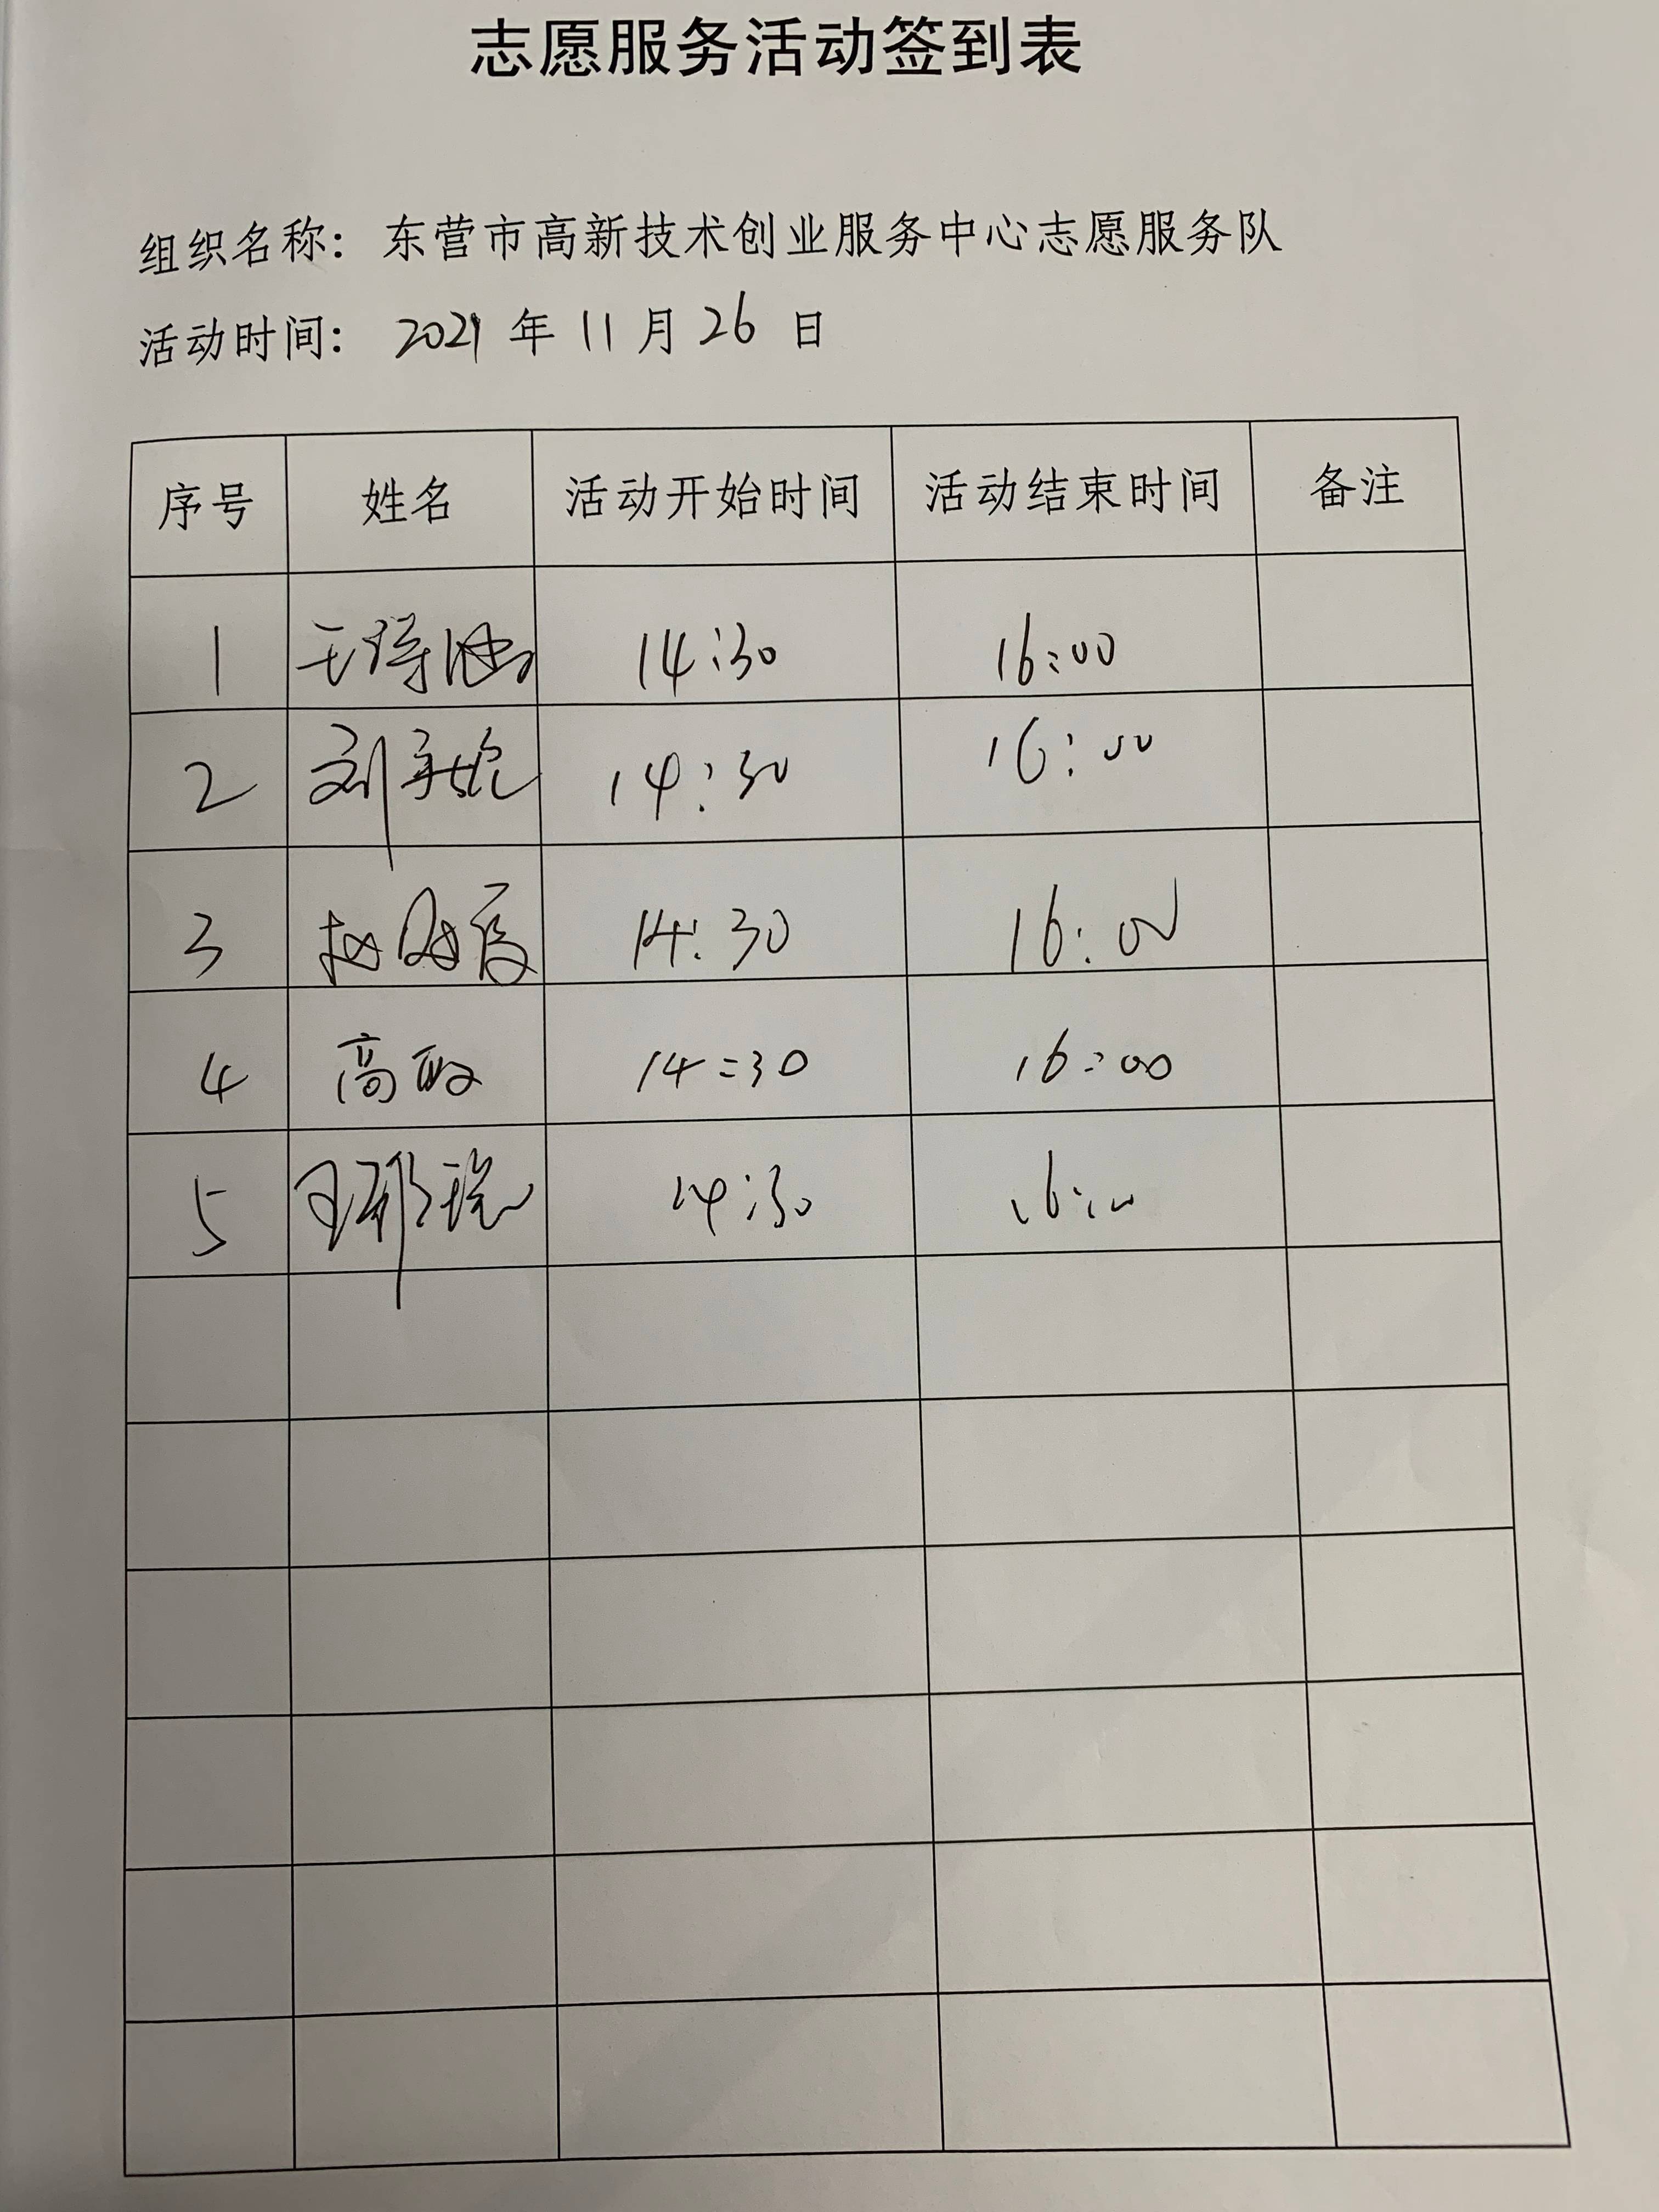 志愿服务活动签到表
组织名称：东营市高新技术创业服务中心志愿服务队
活动时间：2021 年 11 月 26 日
序号 姓名 活动开始时间 活动结束时间 备注
1 14:30 16:00
2 刘 14:30 16:00
3 赵 14:30 16:00
4 高 14:30 16:00
5 王 14:30 16:00